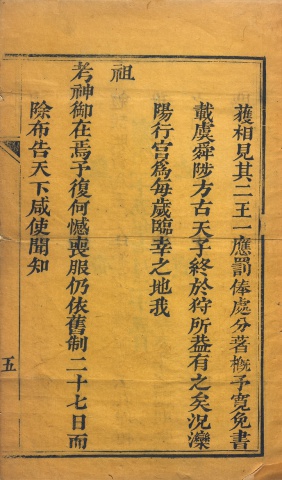 獲相見其二王一應罰俸處分著槪予寬免書
載虞舜陟方古天子終於狩所益有之矣況灤
陽行宮爲每歲臨幸之地我
祖
考神御在焉予復何憾喪服仍依舊制二十七日而
除布告天下咸使聞知
五